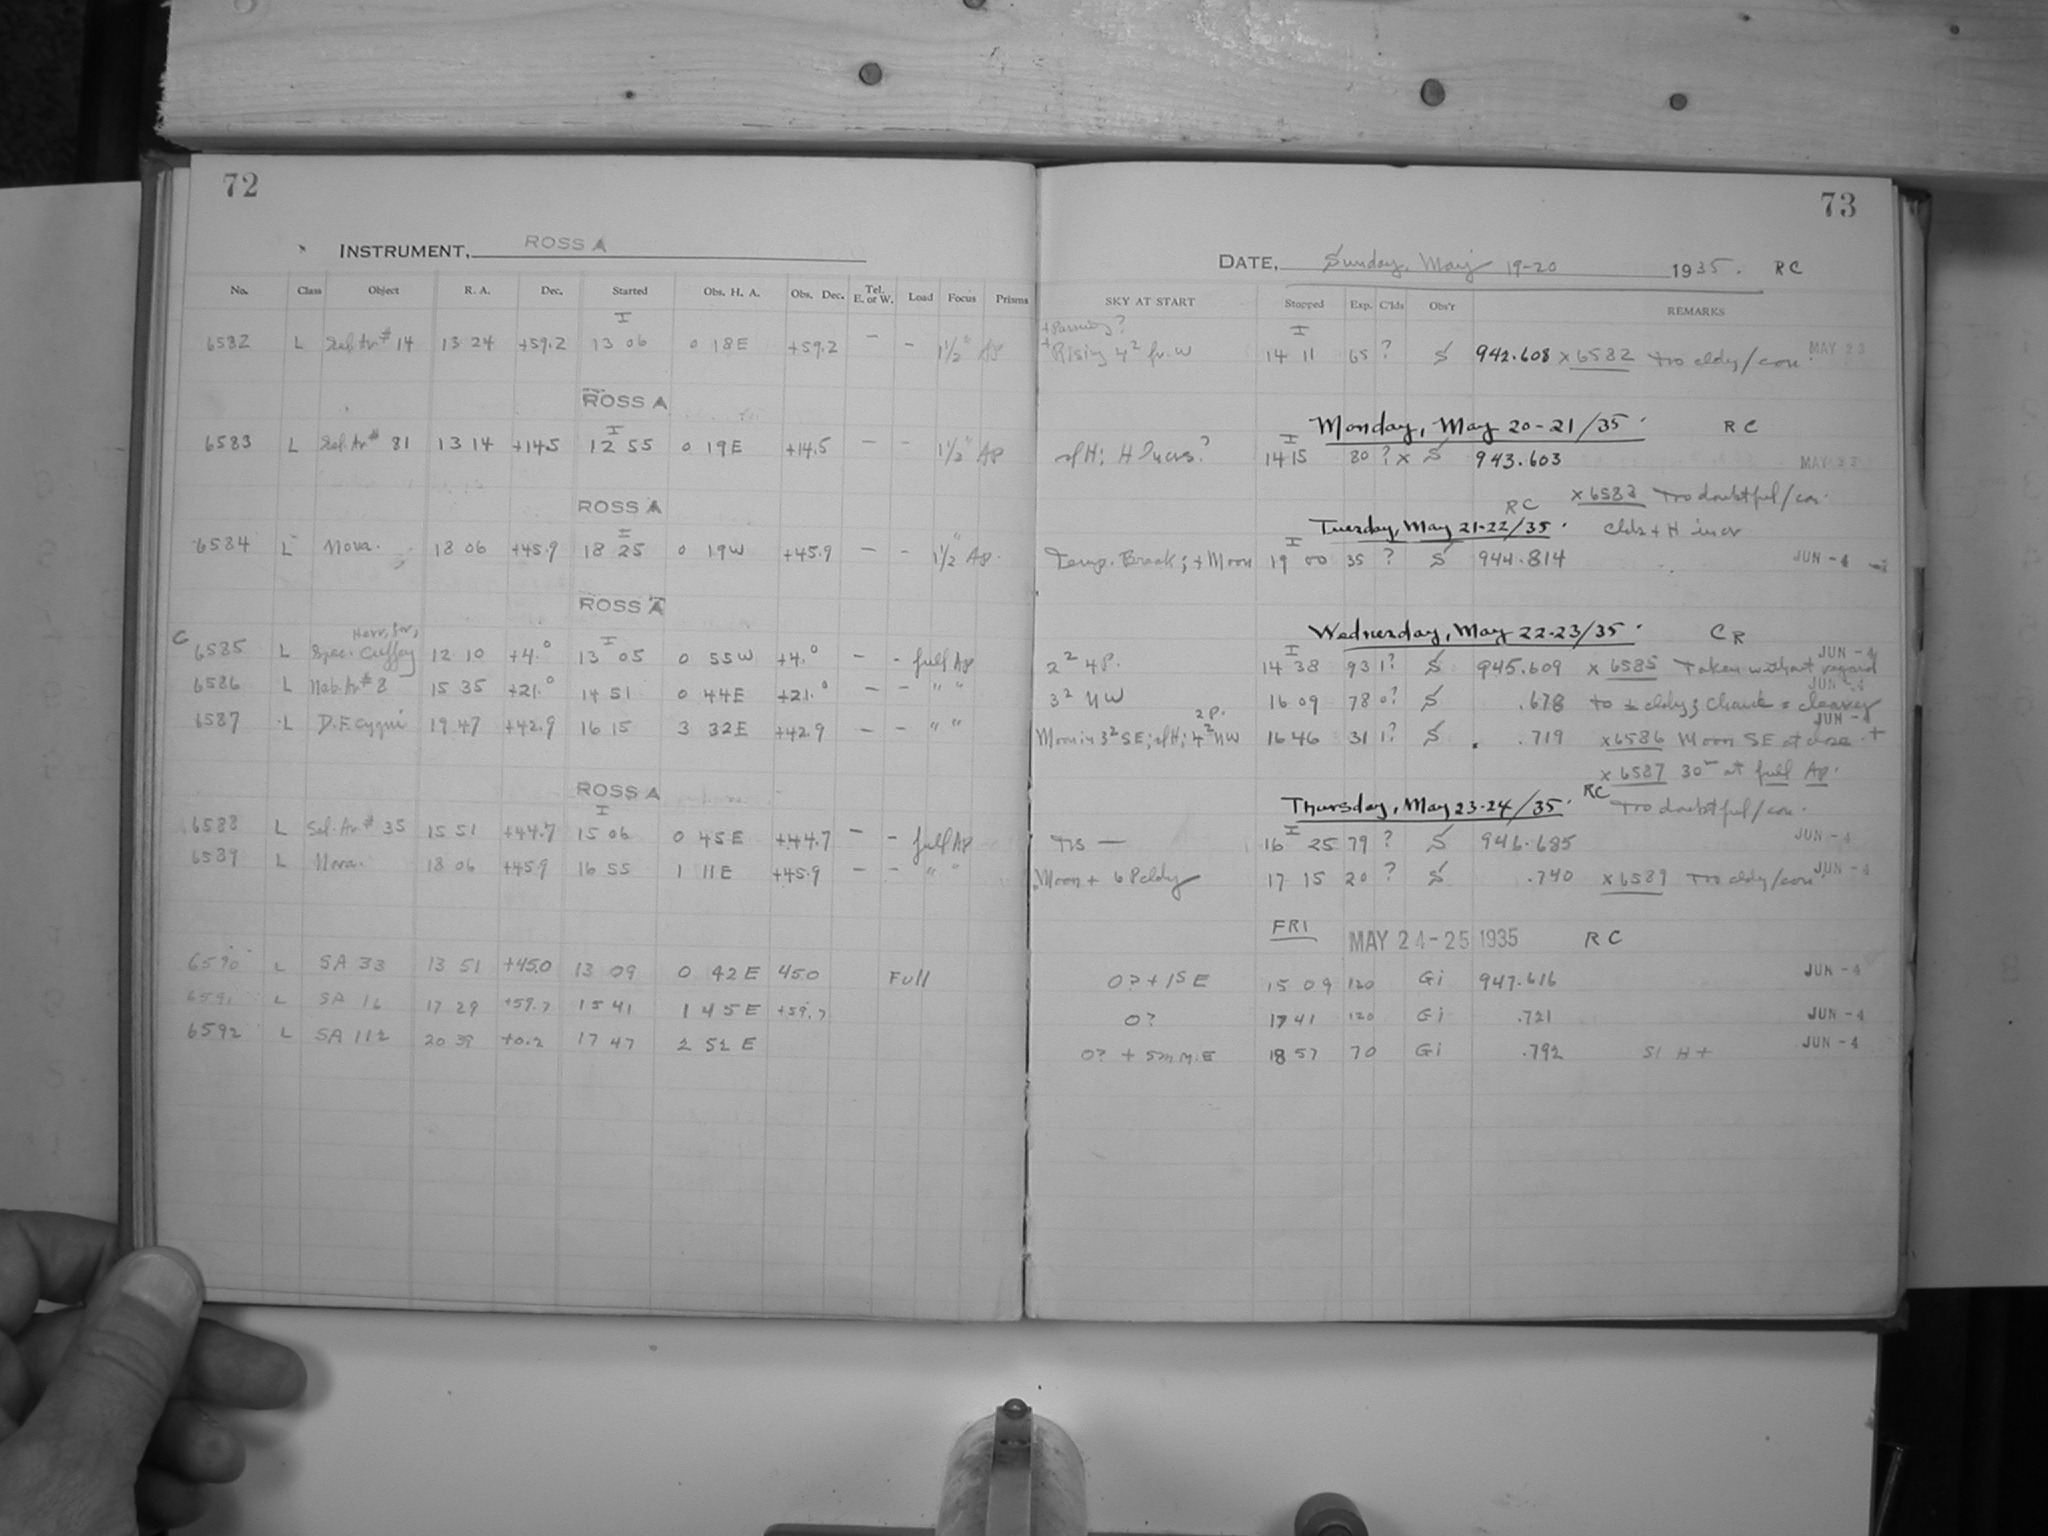 72
INSTRUMENT, ROSS A
No. Class Object R. A. Dec. Started Obs. H. A. Obs. Dec. Tel. E. or W. Load Focus Prisms
I
6582 L Sel. Ar # 14 13 24 +59.2 13 06 0 18E +59.2 — - 1½" Ap
ROSS A
I
6583 L Sel. Ar # 81 13 14 +14.5 12 55 0 19E +14.5 — - 1½" Ap
ROSS A
I
6584 L Nova. 18 06 +45.9 18 25 0 19W +45.9 — - 1½" Ap.
ROSS A
I
C 6585 L Spec. Cuffey 12 10 +4.° 13 05 0 55W +4.° — - full Ap
6586 L Neb. Ar # 8 15 35 +21.° 14 51 0 44E +21.° — - " "
6587 L D.F. Cygni 19 47 +42.9 16 15 3 32E +42.9 — - " "
ROSS A
I
6588 L Sel. Ar # 35 15 51 +44.7 15 06 0 45E +44.7 — - full Ap
6589 L Nova. 18 06 +45.9 16 55 1 11E +45.9 — - " "
6590 L SA 33 13 51 +45.0 13 09 0 42E 45.0 Full
6591 L SA 16 17 29 +59.7 15 41 1 45E +59.7
6592 L SA 112 20 39 +0.2 17 47 2 52 E
73
DATE, Sunday, May 19-20 1935. RC
SKY AT START Stopped Exp. C'lds Obs'r REMARKS
+ Passing?
I
+ Rising 4² fr. W 14 11 65 ? S 942.608 x 6582 Too cldy/con. MAY 23
Monday, May 20-21/35. RC
I
sl H; H Incrs? 14 15 80 ? x S 943.603 MAY 23
x 6583 Too doubtful/con.
RC
Tuesday, May 21-22/35. Clds + H incr
I
Temp. Break; + Moon 19 00 35 ? S 944.814 JUN -4
Wednesday, May 22-23/35. CR
I
2² 4P. 14 38 93 1? S 945.609 x 6585 Taken without regard JUN -4
3² NW 16 09 78 0? S .678 to ± cldy; Chance = clearer JUN -4
2 P.
Moon in 3² SE; sl H; 4² NW 16 46 31 1? S .719 x 6586 Moon SE at close + JUN -4
x 6587 30ᵐ at full Ap.
RC
Thursday, May 23-24/35. Too doubtful/con.
I
Tis — 16 25 79 ? S 946.685 JUN -4
Moon + 6 P cldy 17 15 20 ? S .740 x 6589 Too cldy/con JUN -4
FRI MAY 24-25 1935 RC
0? + 1S E 15 09 120 Gi 947.616 JUN -4
0? 17 41 120 Gi .721 JUN -4
0? + 5m N.E 18 57 70 Gi .792 Sl H + JUN -4